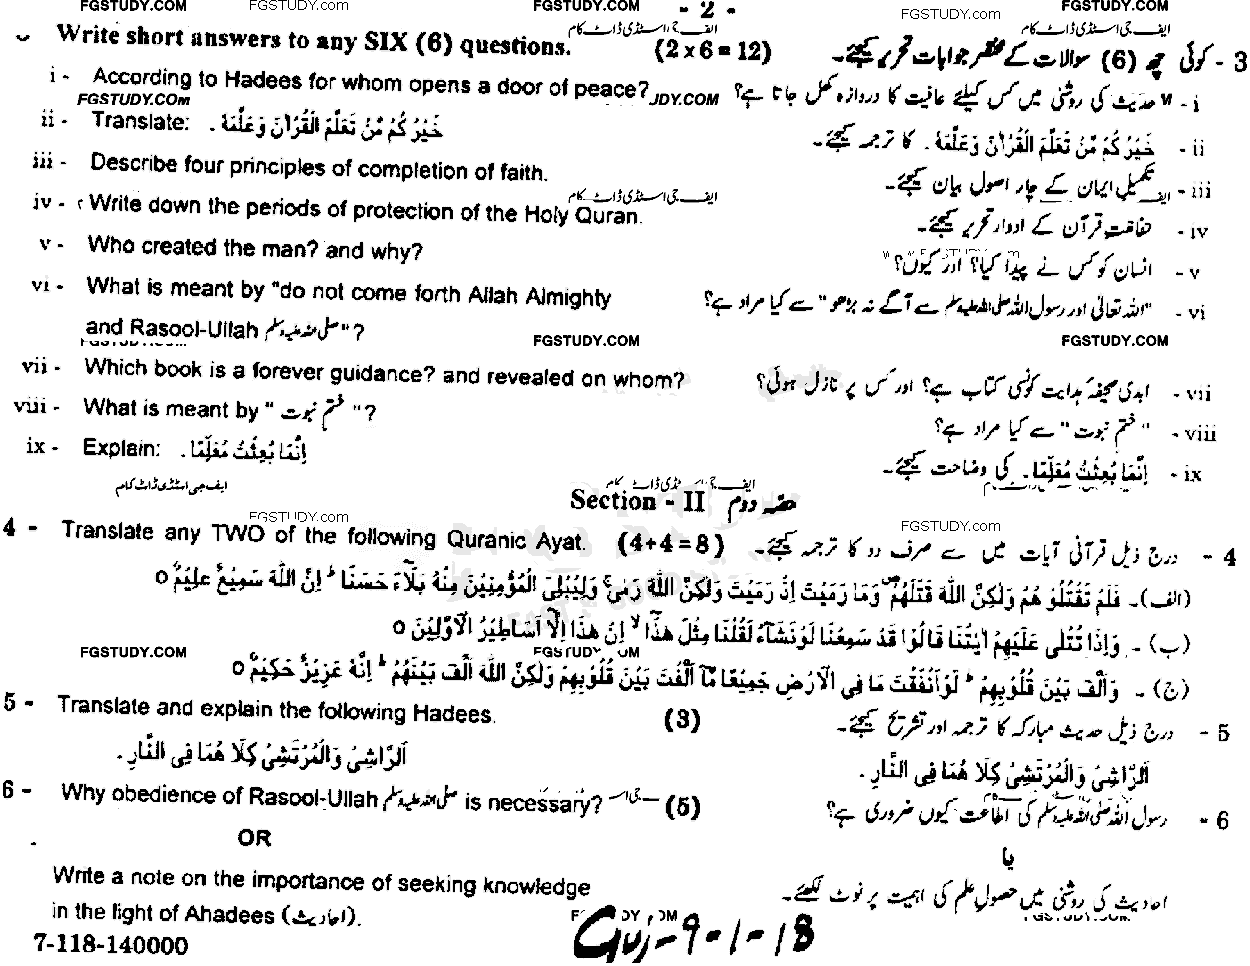 FGSTUDY.COM FGSTUDY.com FGSTUDY.COM - 2 - FGSTUDY.com FGSTUDY.COM
ایف جی اسٹڈی ڈاٹ کام ایف جی اسٹڈی ڈاٹ کام
Write short answers to any SIX (6) questions. (2 x 6 = 12) 3 - کوئی چھ (6) سوالات کے مختصر جوابات تحریر کیجئے۔
i - According to Hadees for whom opens a door of peace? i - حدیث کی روشنی میں کس کیلئے عافیت کا دروازہ کھل جاتا ہے؟
FGSTUDY.COM JDY.COM
ii - Translate: خَيْرُ كُمْ مَّنْ تَعَلَّمَ الْقُرْاٰنَ وَعَلَّمَهٗ . ii - خَيْرُ كُمْ مَّنْ تَعَلَّمَ الْقُرْاٰنَ وَعَلَّمَهٗ . کا ترجمہ کیجئے۔
iii - Describe four principles of completion of faith. iii - تکمیل ایمان کے چار اصول بیان کیجئے۔
ایف جی اسٹڈی ڈاٹ کام
iv - Write down the periods of protection of the Holy Quran. iv - حفاظتِ قرآن کے ادوار تحریر کیجئے۔
v - Who created the man? and why? v - انسان کو کس نے پیدا کیا؟ اور کیوں؟
vi - What is meant by "do not come forth Allah Almighty vi - "اللہ تعالیٰ اور رسول اللہ صلی اللہ علیہ وسلم سے آگے نہ بڑھو" سے کیا مراد ہے؟
and Rasool-Ullah صلی اللہ علیہ وسلم "?
FGSTUDY.COM FGSTUDY.COM FGSTUDY.COM
vii - Which book is a forever guidance? and revealed on whom? vii - ابدی صحیفۂ ہدایت کونسی کتاب ہے؟ اور کس پر نازل ہوئی؟
viii - What is meant by " ختم نبوت "? viii - " ختم نبوت " سے کیا مراد ہے؟
ix - Explain: اِنَّمَا بُعِثْتُ مُعَلِّمًا . ix - اِنَّمَا بُعِثْتُ مُعَلِّمًا . کی وضاحت کیجئے۔
ایف جی اسٹڈی ڈاٹ کام ایف جی اسٹڈی ڈاٹ کام
Section - II حصہ دوم
FGSTUDY.com FGSTUDY.com
4 - Translate any TWO of the following Quranic Ayat. (4+4=8) 4 - درج ذیل قرآنی آیات میں سے صرف دو کا ترجمہ کیجئے۔
(الف)۔ فَلَمْ تَقْتُلُوْ هُمْ وَلٰكِنَّ اللّٰهَ قَتَلَهُمْ ص وَمَا رَمَيْتَ اِذْ رَمَيْتَ وَلٰكِنَّ اللّٰهَ رَمٰى ج وَلِيُبْلِىَ الْمُؤْمِنِيْنَ مِنْهُ بَلَآءً حَسَنًا ط اِنَّ اللّٰهَ سَمِيْعٌ عَلِيْمٌ ٥
(ب)۔ وَاِذَا تُتْلٰى عَلَيْهِمْ اٰيٰتُنَا قَالُوْا قَدْ سَمِعْنَا لَوْ نَشَآءُ لَقُلْنَا مِثْلَ هٰذَآ لا اِنْ هٰذَآ اِلَّآ اَسَاطِيْرُ الْاَوَّلِيْنَ ٥
FGSTUDY.COM
(ج)۔ وَاَلَّفَ بَيْنَ قُلُوْبِهِمْ ط لَوْ اَنْفَقْتَ مَا فِى الْاَرْضِ جَمِيْعًا مَّآ اَلَّفْتَ بَيْنَ قُلُوْبِهِمْ وَلٰكِنَّ اللّٰهَ اَلَّفَ بَيْنَهُمْ ط اِنَّهٗ عَزِيْزٌ حَكِيْمٌ ٥
5 - Translate and explain the following Hadees. (3) 5 - درج ذیل حدیث مبارکہ کا ترجمہ اور تشریح کیجئے۔
اَلرَّاشِىْ وَالْمُرْتَشِىْ كِلَا هُمَا فِى النَّارِ . اَلرَّاشِىْ وَالْمُرْتَشِىْ كِلَا هُمَا فِى النَّارِ .
6 - Why obedience of Rasool-Ullah صلی اللہ علیہ وسلم is necessary? (5) 6 - رسول اللہ صلی اللہ علیہ وسلم کی اطاعت کیوں ضروری ہے؟
OR یا
Write a note on the importance of seeking knowledge احادیث کی روشنی میں حصولِ علم کی اہمیت پر نوٹ لکھئے۔
in the light of Ahadees (احادیث).
FGSTUDY.COM
7-118-140000 Guj-9-1-18